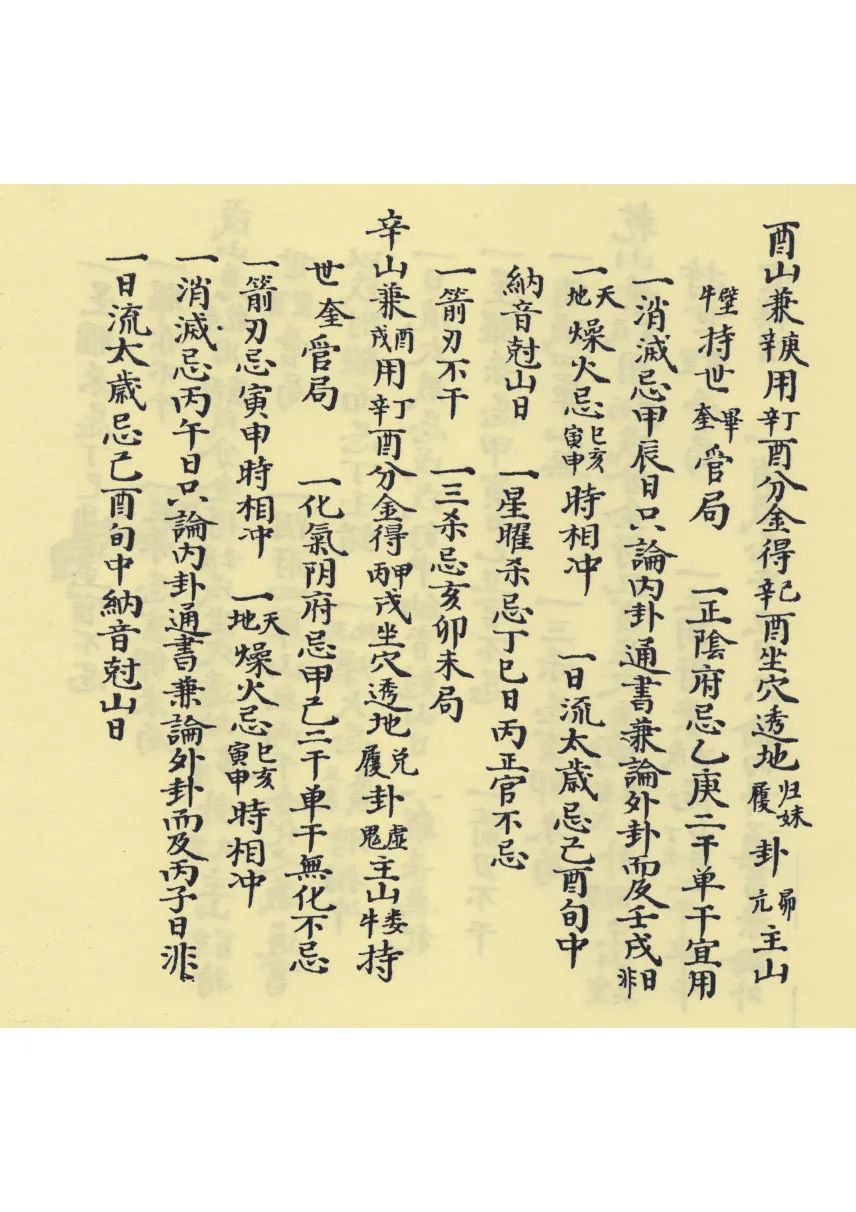 酉山兼庚辛用丁辛酉分金得己辛酉坐穴透地归妹履卦昴亢主山
壁牛持世畢奎管局 一正陰府忌乙庚二干单干宜用
一消滅忌甲辰日只論内卦通書兼論外卦而及壬戌日非
一天地燥火忌巳亥寅申時相冲 一日流太歳忌己酉旬中
納音尅山日 一星曜杀忌丁巳日丙正官不忌
一箭刃不干 一三杀忌亥卯未局
辛山兼酉戌用丁辛酉分金得甲丙戌坐穴透地兑履卦虚鬼主山娄牛持
世奎管局 一化氣阴府忌甲己二干单干無化不忌
一箭刃忌寅申時相冲 一天地燥火忌巳亥寅申時相冲
一消滅忌丙午日只論内卦通書兼論外卦而及丙子日非
一日流太歳忌己酉旬中納音尅山日